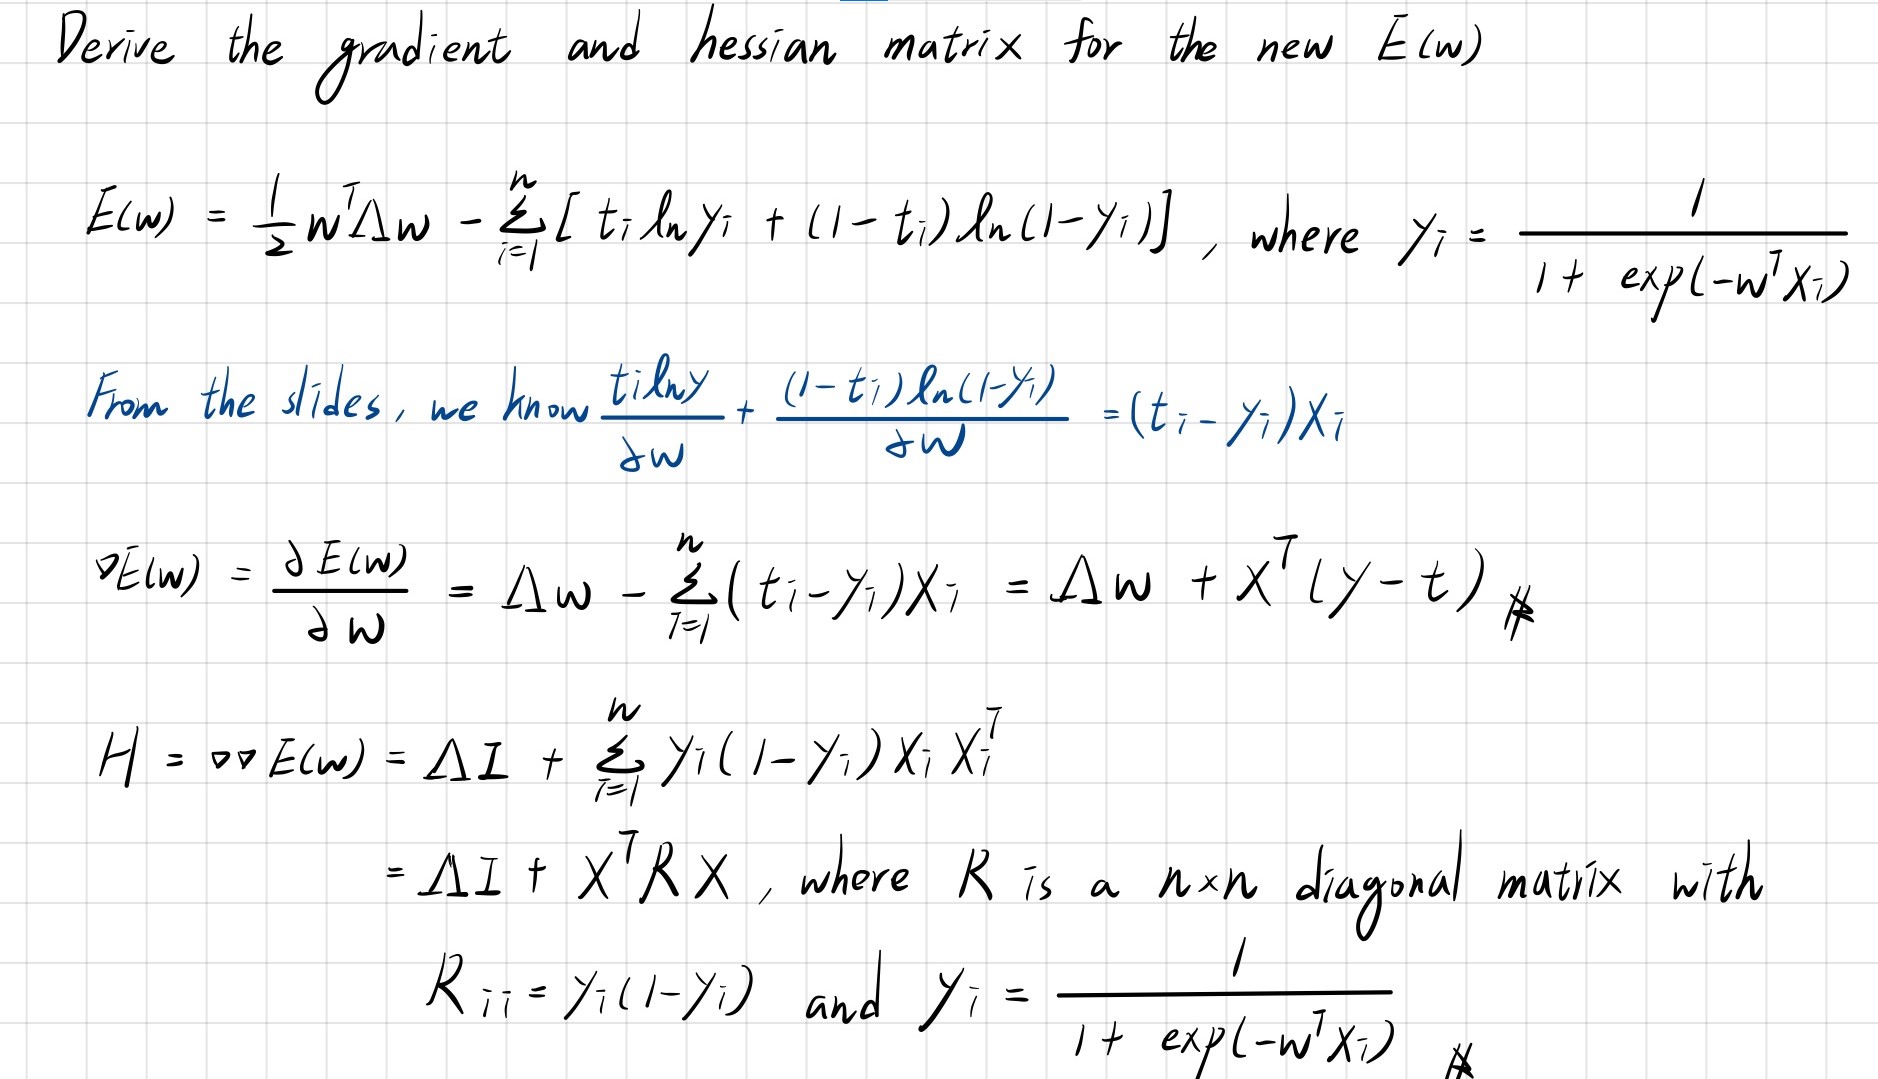 Derive the gradient and hessian matrix for the new E(w)
E(w) = 1/2 wᵀΛw - Σᵢ₌₁ⁿ [ tᵢ ln yᵢ + (1 - tᵢ) ln(1 - yᵢ)] , where yᵢ = 1 / (1 + exp(-wᵀxᵢ))
From the slides, we know tᵢ ln y / ∂w + (1 - tᵢ) ln(1 - yᵢ) / ∂w = (tᵢ - yᵢ)xᵢ
∇E(w) = ∂E(w) / ∂w = Λw - Σᵢ₌₁ⁿ (tᵢ - yᵢ)xᵢ = Λw + Xᵀ(y - t) #
H = ∇∇E(w) = ΛI + Σᵢ₌₁ⁿ yᵢ(1 - yᵢ)xᵢxᵢᵀ
= ΛI + XᵀRX , where R is a n×n diagonal matrix with
Rᵢᵢ = yᵢ(1 - yᵢ) and yᵢ = 1 / (1 + exp(-wᵀxᵢ)) #